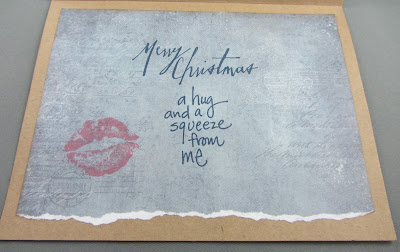 Merry
Christmas
a hug
and a
squeeze
from
me